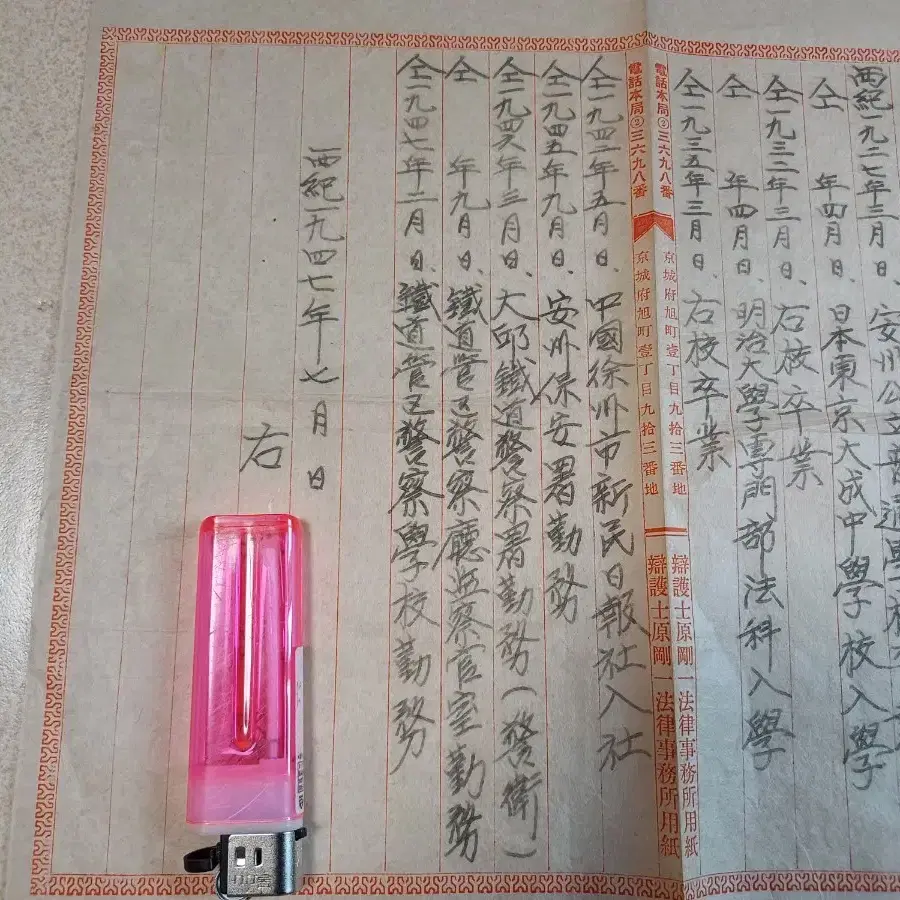 西紀一九二七年三月 日、安州公立普通學校
仝 年四月 日、日本東京大成中學校入學
仝一九三二年三月 日、右校卒業
仝 年四月 日、明治大學專門部法科入學
仝一九三五年三月 日、右校卒業
電話本局②三六九八番 京城府旭町壹丁目九拾三番地 辯護士原剛一法律事務所用紙
電話本局②三六九八番 京城府旭町壹丁目九拾三番地 辯護士原剛一法律事務所用紙
仝一九四二年五月 日、中國徐州市新民日報社入社
仝一九四五年九月 日、安州保安署勤務
仝一九四六年三月 日、大邱鐵道警察署勤務(警衛)
仝 年九月 日、鐵道管区警察廳監察官室勤務
仝一九四七年二月 日、鐵道管区警察學校勤務
西紀一九四七年七月 日
右